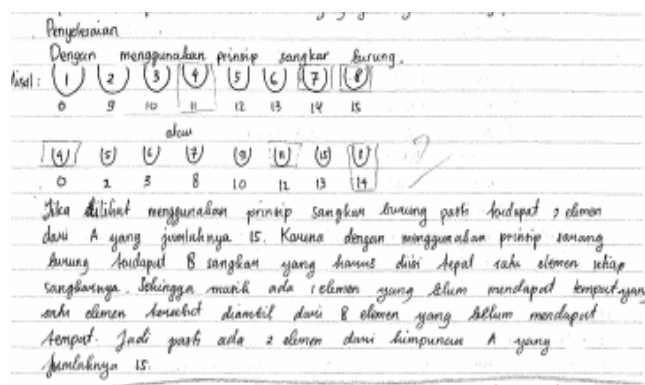 Penyelesaian
Dengan menggunakan prinsip sangkar burung.
Misal: (1) (2) (3) (4) (5) (6) (7) (8)
0 9 10 11 12 13 14 15
atau
(4) (5) (6) (7) (9) (11) (15) (8)
0 2 3 8 10 12 13 14
Jika dilihat menggunakan prinsip sangkar burung pasti terdapat 2 elemen
dari A yang jumlahnya 15. Karena dengan menggunakan prinsip sarang
burung terdapat 8 sangkar yang harus diisi tepat satu elemen setiap
sangkarnya. Sehingga masih ada 1 elemen yang belum mendapat tempat yang
satu elemen tersebut diambil dari 8 elemen yang belum mendapat
tempat. Jadi pasti ada 2 elemen dari himpunan A yang
jumlahnya 15.